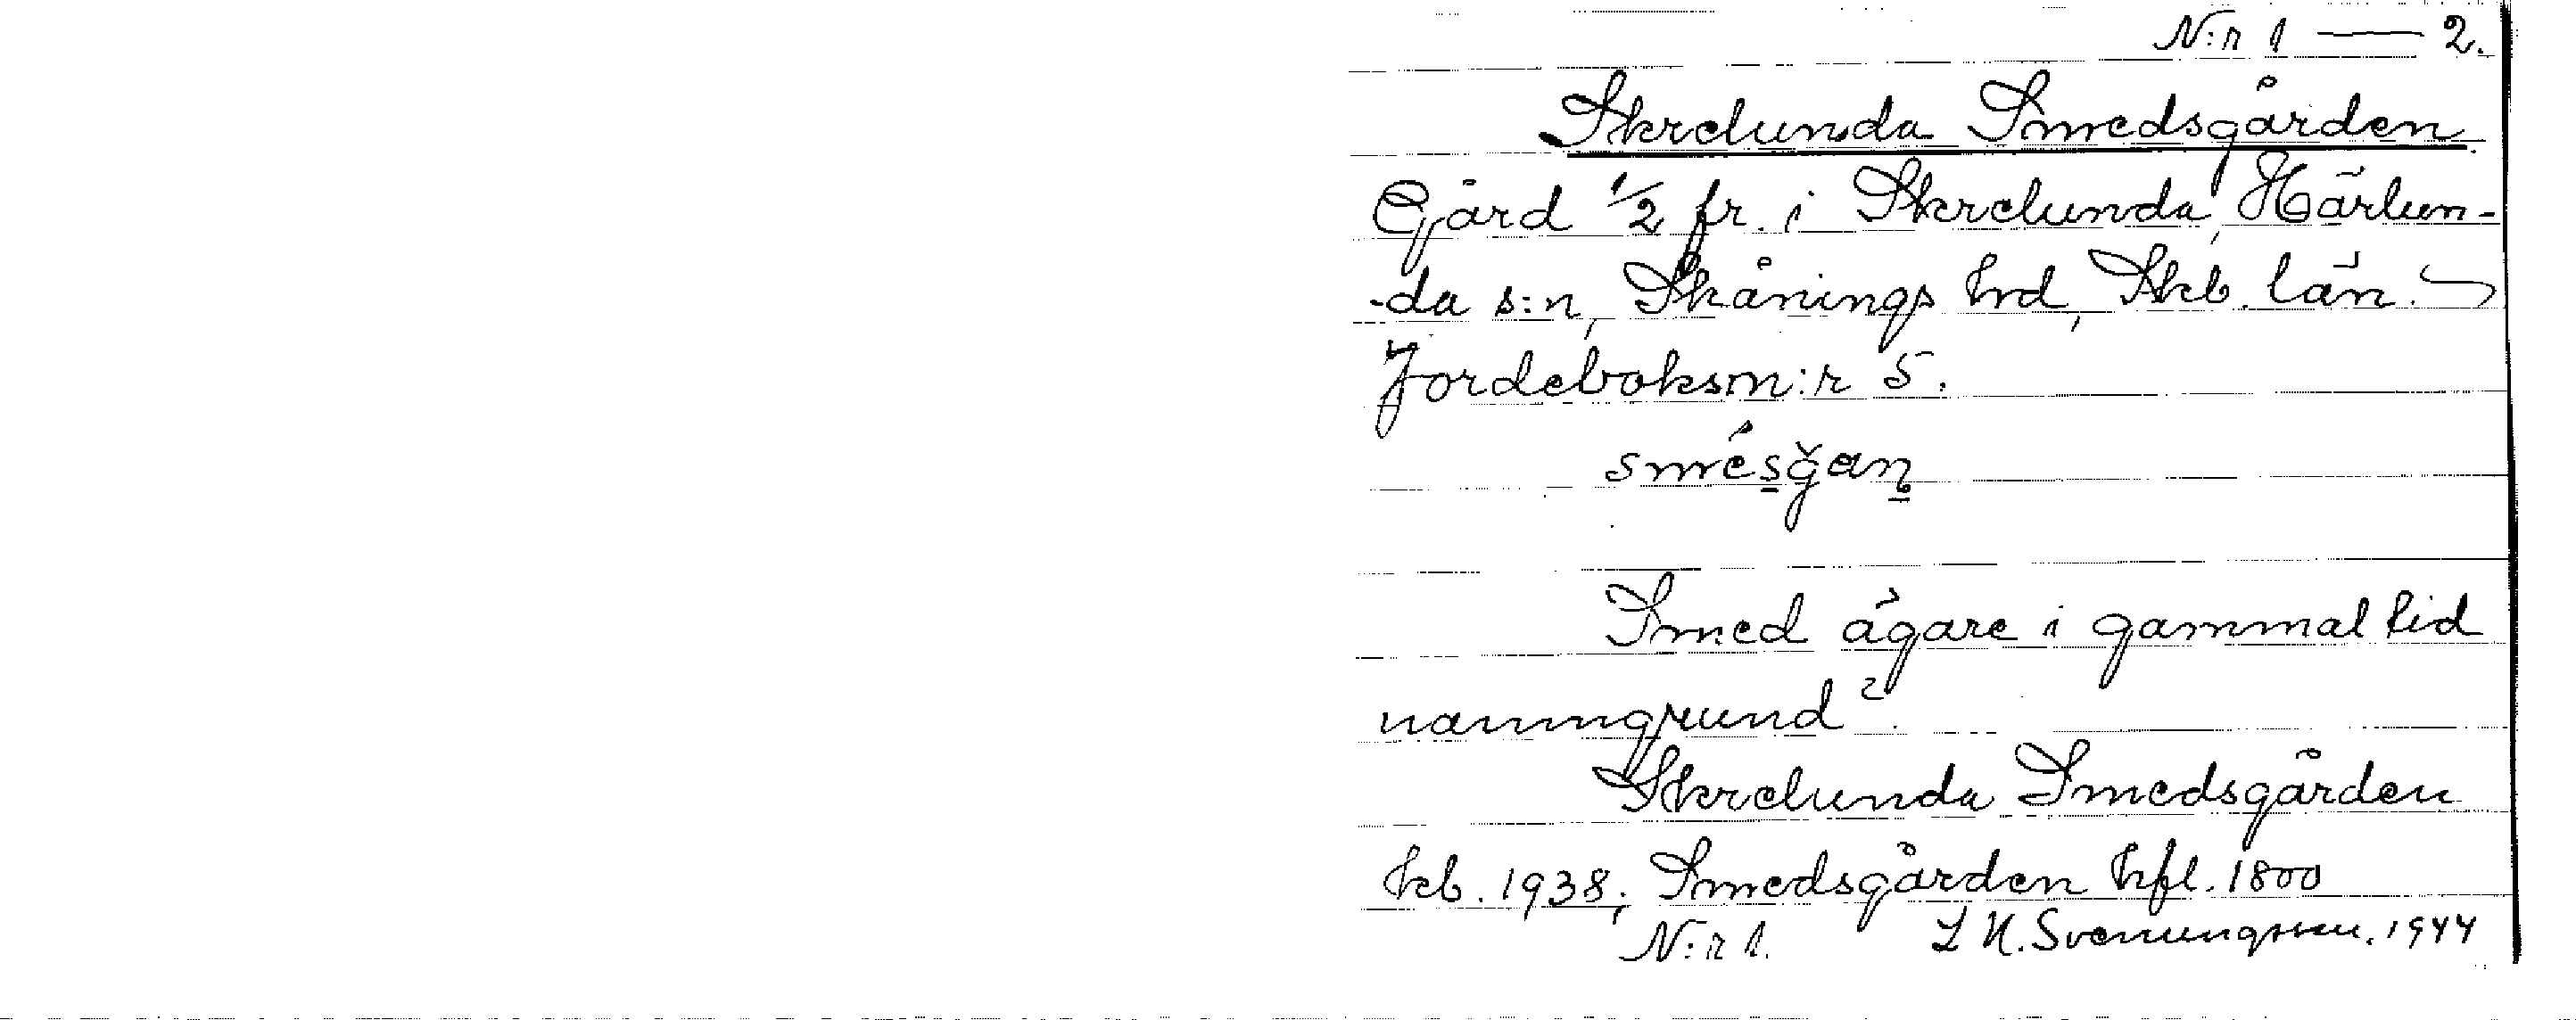 N:r 1 — 2.
Skrelunda Smedsgården.
Gård 1/2 fr. i Skrelunda, Härlun-
-da s:n, Skånings hrd, Skb. län.
Jordeboksn:r 5.
smésğaṇ
Smed ägare i gammal tid
namngrund?
Skrelunda Smedsgården
kb. 1938; Smedsgården hfl. 1800
N:r 1. L N. Svenungsson. 1944